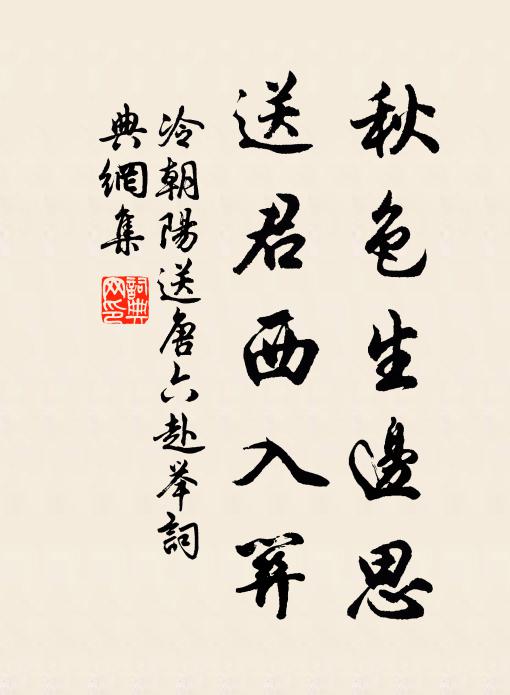 秋色生邊思
送君西入關
冷朝陽送唐六赴举詞
典網集
詞典網印